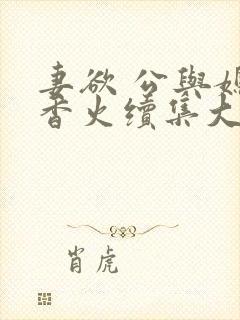 妻欲公與媳
香火續集大
肖虎